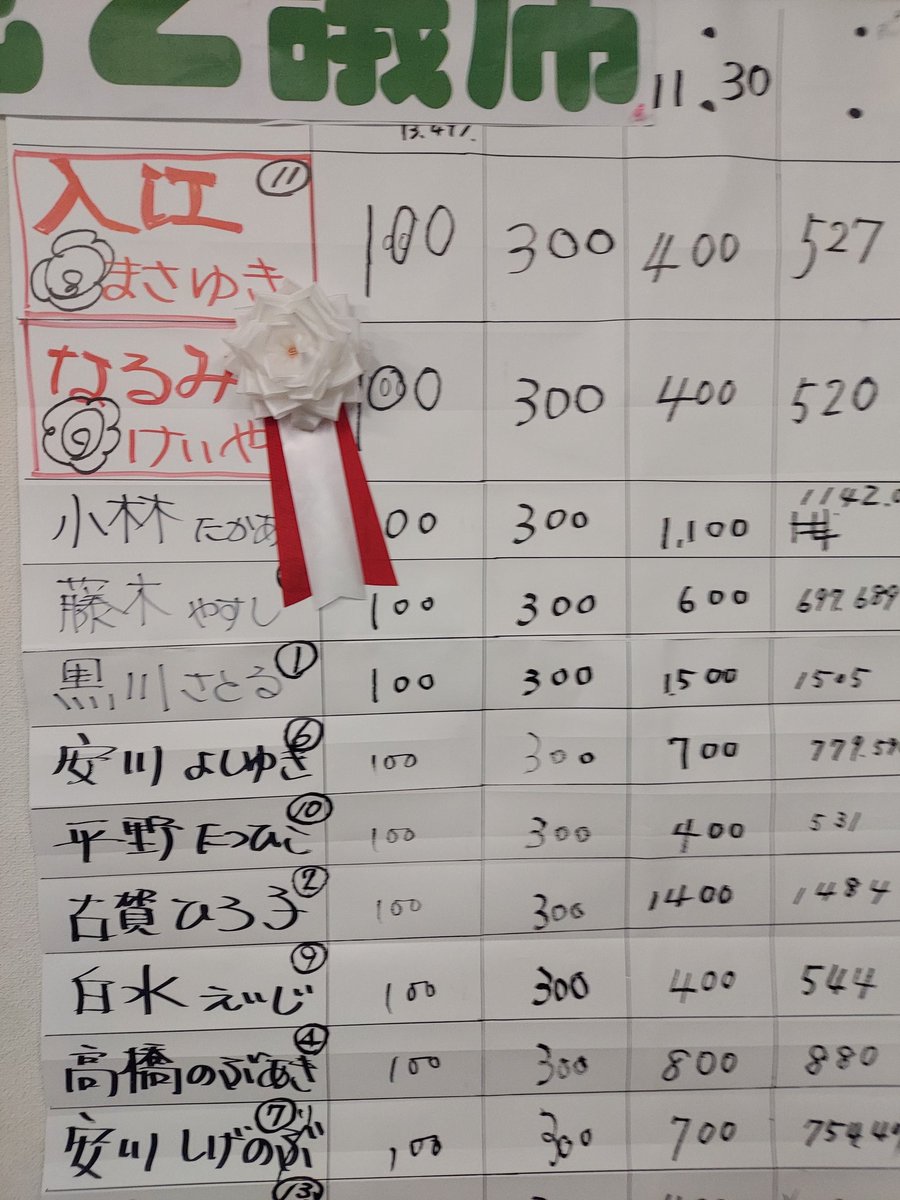 と議席
11.30
13.47%
入江 まさゆき ⑪ 100 300 400 527
なるみ けいや 100 300 400 520
小林 たかあ 00 300 1,100 1142.0
藤木 やすし 100 300 600 697.689
黒川 さとる ① 100 300 1500 1505
安川 よしゆき ⑥ 100 300 700 779.59
平野 たつひこ ⑩ 100 300 400 531
古賀 ひろ子 ② 100 300 1400 1484
白水 えいじ ⑨ 100 300 400 544
高橋 のぶあき ④ 100 300 800 880
安川 しげのぶ ⑦ 100 300 700 754.4
⑬